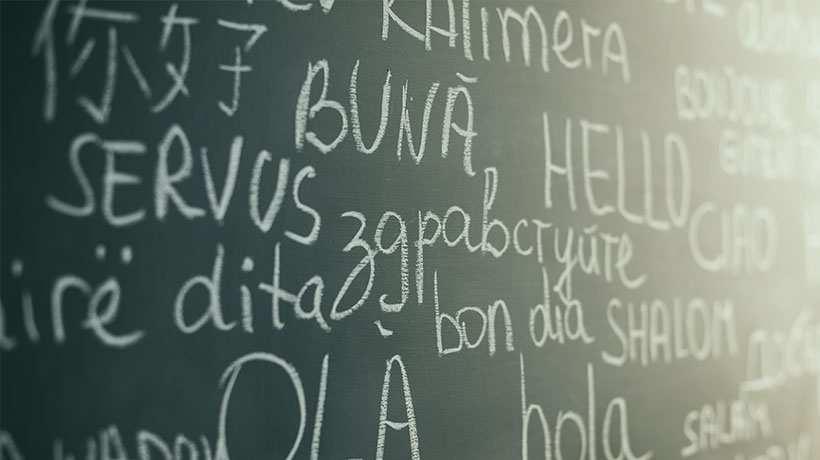 你好 Kalimera
BUNĂ BONJOUR
SERVUS HELLO
здравствуйте CIAO
dita bon dia SHALOM
OLÀ hola SALAM